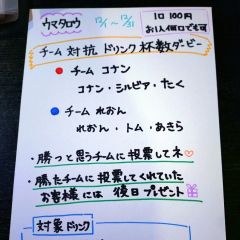 ウマタロウ 12/1 〜 12/31 1口 100円
お1人何口でも可
チーム 対抗 ドリンク 杯数ダービー
チーム コナン
コナン・シルビア・たく
チーム れおん
れおん・トム・あきら
・勝つと思うチームに投票してネ♡
・勝ったチームに投票してくれていた
お客様には 後日プレゼント
対象ドリンク